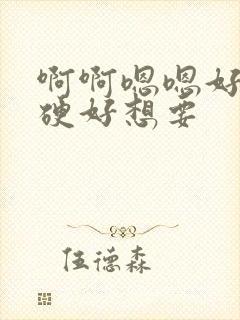 啊啊嗯嗯好
硬好想要
伍德森